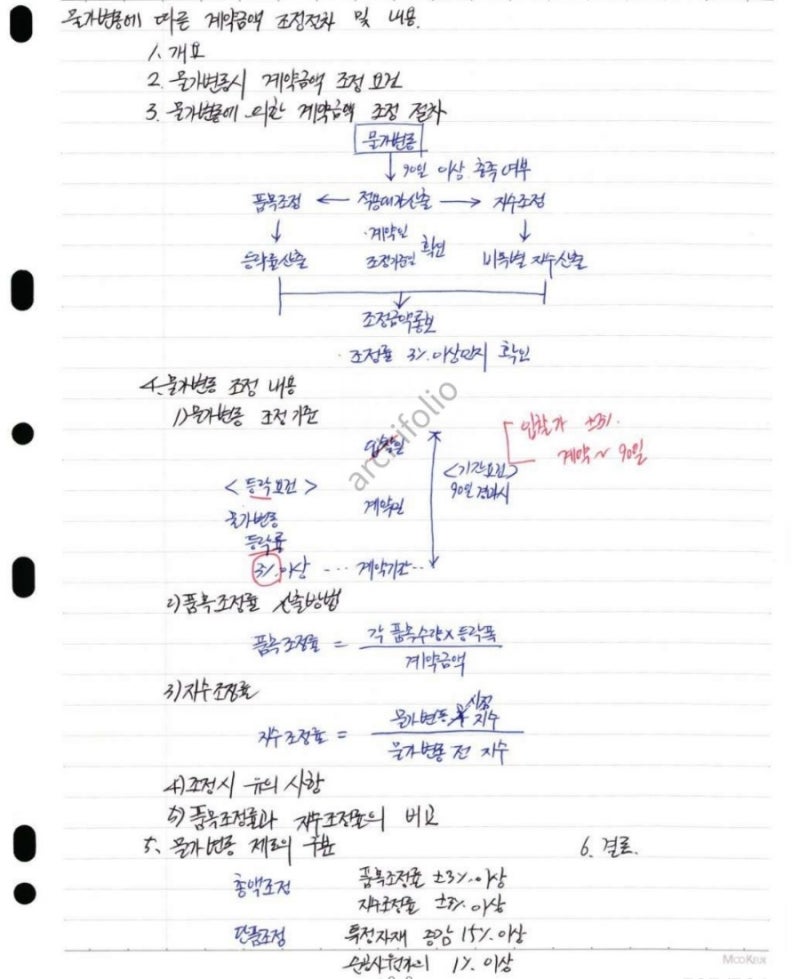 물가변동에 따른 계약금액 조정절차 및 내용.
1. 개요
2. 물가변동시 계약금액 조정 요건
3. 물가변동에 의한 계약금액 조정 절차
물가변동
90일 이상 충족 여부
품목조정 ← 적용대가산출 → 지수조정
·계약일
조정기준일 확인
등락률산출 비목별 지수산출
조정금액통보
· 조정률 3% 이상인지 확인
4. 물가변동 조정 내용
1) 물가변동 조정 기준
입찰일
입찰가 ±3%.
계약~90일
<등락요건>
<기간요건>
90일 경과시
물가변동
계약일
등락률
3% 이상 ... 계약기간...
2) 품목조정률 산출방법
품목조정률 = 각 품목수량 x 등락폭
계약금액
3) 지수조정률
시점
지수조정률 = 물가변동 지수
물가변동 전 지수
4) 조정시 유의 사항
5) 품목조정률과 지수조정률의 비교
5. 물가변동 제도의 구분
6. 결론.
총액조정 품목조정률 ±3% 이상
지수조정률 ±3% 이상
단품조정 특정자재 증감 15% 이상
순공사원가의 1% 이상
archifolio